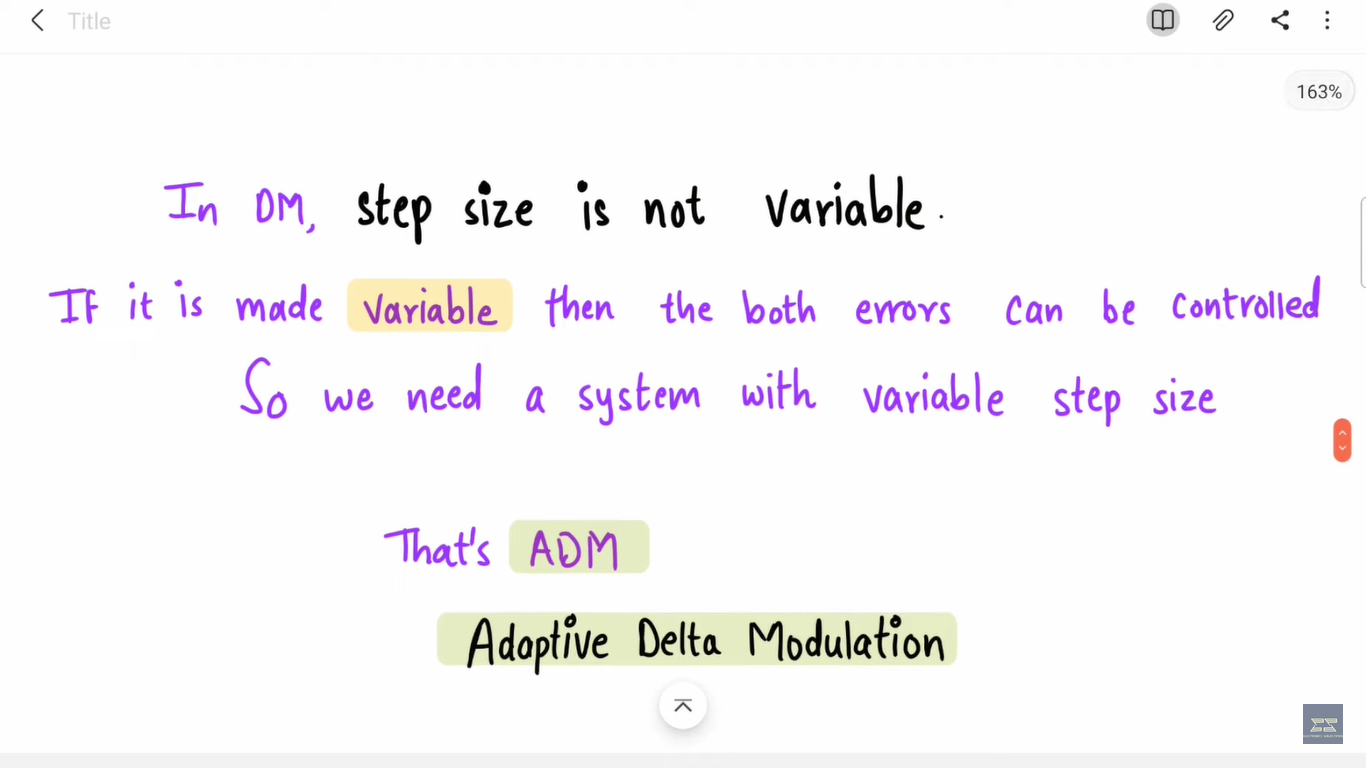 Title
163%
In DM, step size is not variable.
If it is made variable then the both errors can be controlled
So we need a system with variable step size
That's ADM
Adaptive Delta Modulation